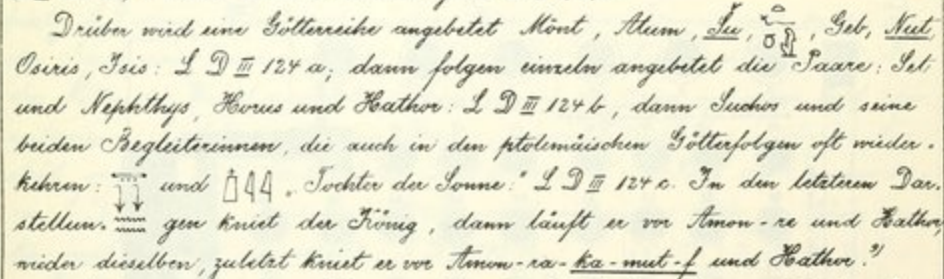 Drüber wird eine Götterreihe angebetet Mönt, Atum, Šu, , Geb, Nut,
Osiris, Isis: L D III 124 a; dann folgen einzeln angebetet die Paare: Set
und Nephthys, Horus und Hathor: L D III 124 b, dann Suchos und seine
beiden Begleiterinnen, die auch in den ptolemäischen Götterfolgen oft wieder-
kehren: und „Tochter der Sonne:" L D III 124 c. In den letzteren Dar-
stellun-gen kniet der König, dann läuft er vor Amon-re und Hathor,
wieder dieselben, zuletzt kniet er vor Amon-ra-ka-mut-f und Hathor.²⁾